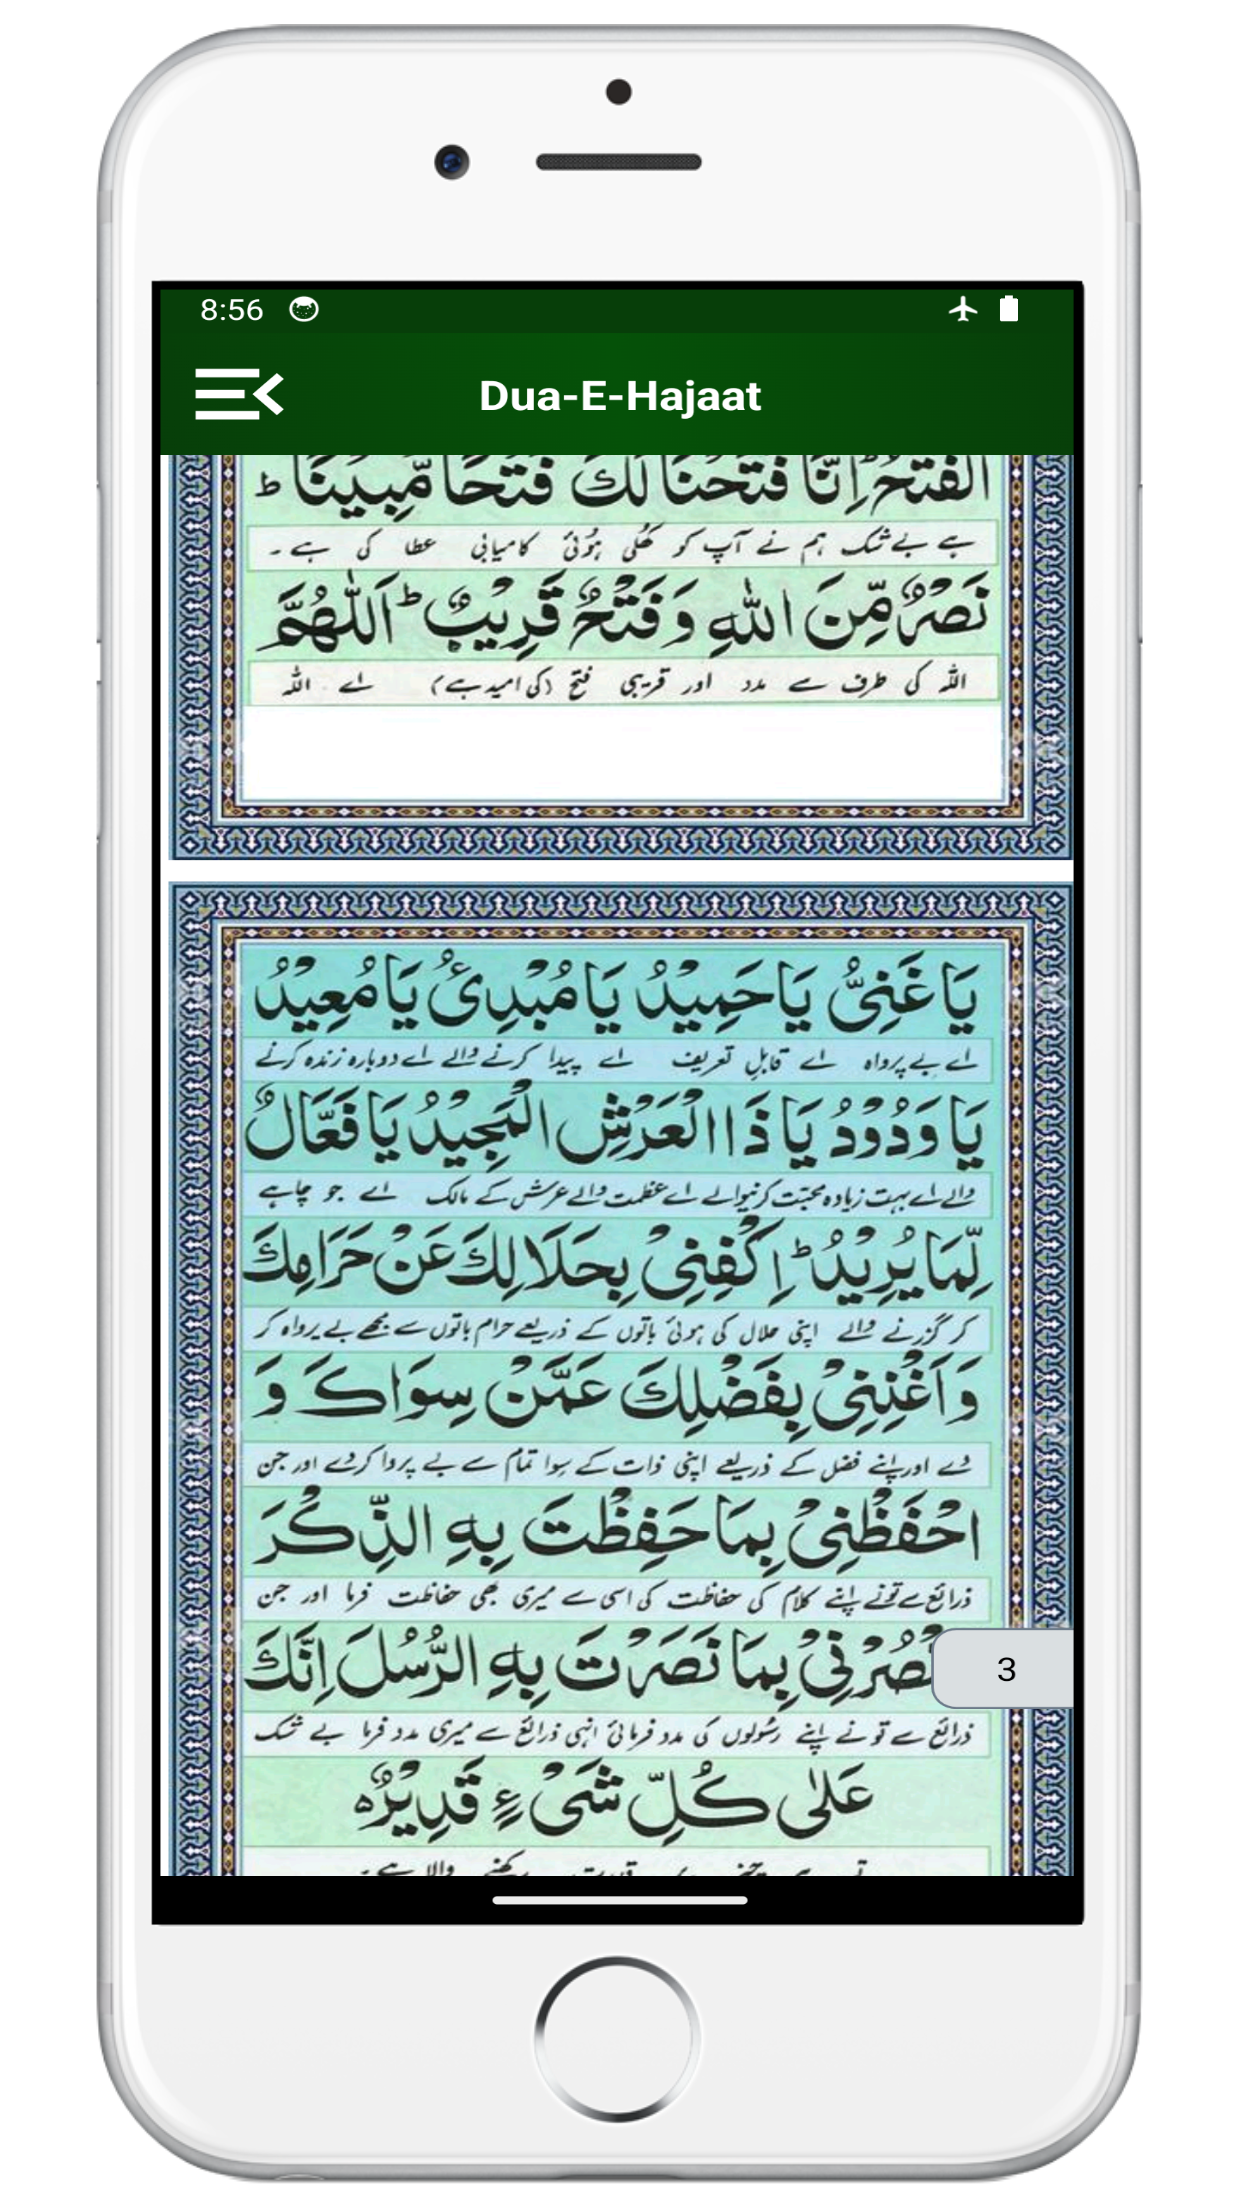 8:56
Dua-E-Hajaat
الْفَتْحُ ؕ اِنَّا فَتَحْنَا لَكَ فَتْحًا مُّبِيْنًا ؕ
ہے بے شک ہم نے آپ کو کھلی ہوئی کامیابی عطا کی ہے ۔
نَصْرٌ مِّنَ اللّٰهِ وَفَتْحٌ قَرِيْبٌ ؕ اَللّٰهُمَّ
اللہ کی طرف سے مدد اور قریبی فتح (کی امید ہے) اے اللہ
يَا غَنِيُّ يَا حَمِيْدُ يَا مُبْدِئُ يَا مُعِيْدُ
اے بے پرواہ اے قابلِ تعریف اے پیدا کرنے والے اے دوبارہ زندہ کرنے
يَا وَدُوْدُ يَا ذَا الْعَرْشِ الْمَجِيْدُ يَا فَعَّالٌ
والے اے بہت زیادہ محبّت کرنیوالے اے عظمت والے عرش کے مالک اے جو چاہے
لِّمَا يُرِيْدُ ؕ اِكْفِنِيْ بِحَلَالِكَ عَنْ حَرَامِكَ
کر گزرنے والے اپنی حلال کی ہوئی باتوں کے ذریعے حرام باتوں سے مجھے بے پرواہ کر
وَاَغْنِنِيْ بِفَضْلِكَ عَمَّنْ سِوَاكَ وَ
دے اور اپنے فضل کے ذریعے اپنی ذات کے سوا تمام سے بے پروا کر دے اور جن
احْفَظْنِيْ بِمَا حَفِظْتَ بِهِ الذِّكْرَ
ذرائع سے تونے اپنے کلام کی حفاظت کی اسی سے میری بھی حفاظت فرما اور جن
بِمَا نَصَرْتَ بِهِ الرُّسُلَ اِنَّكَ
3
ذرائع سے تو نے اپنے رسُولوں کی مدد فرمائی انہی ذرائع سے میری مدد فرما بے شک
عَلٰى كُلِّ شَيْءٍ قَدِيْرٌ ه